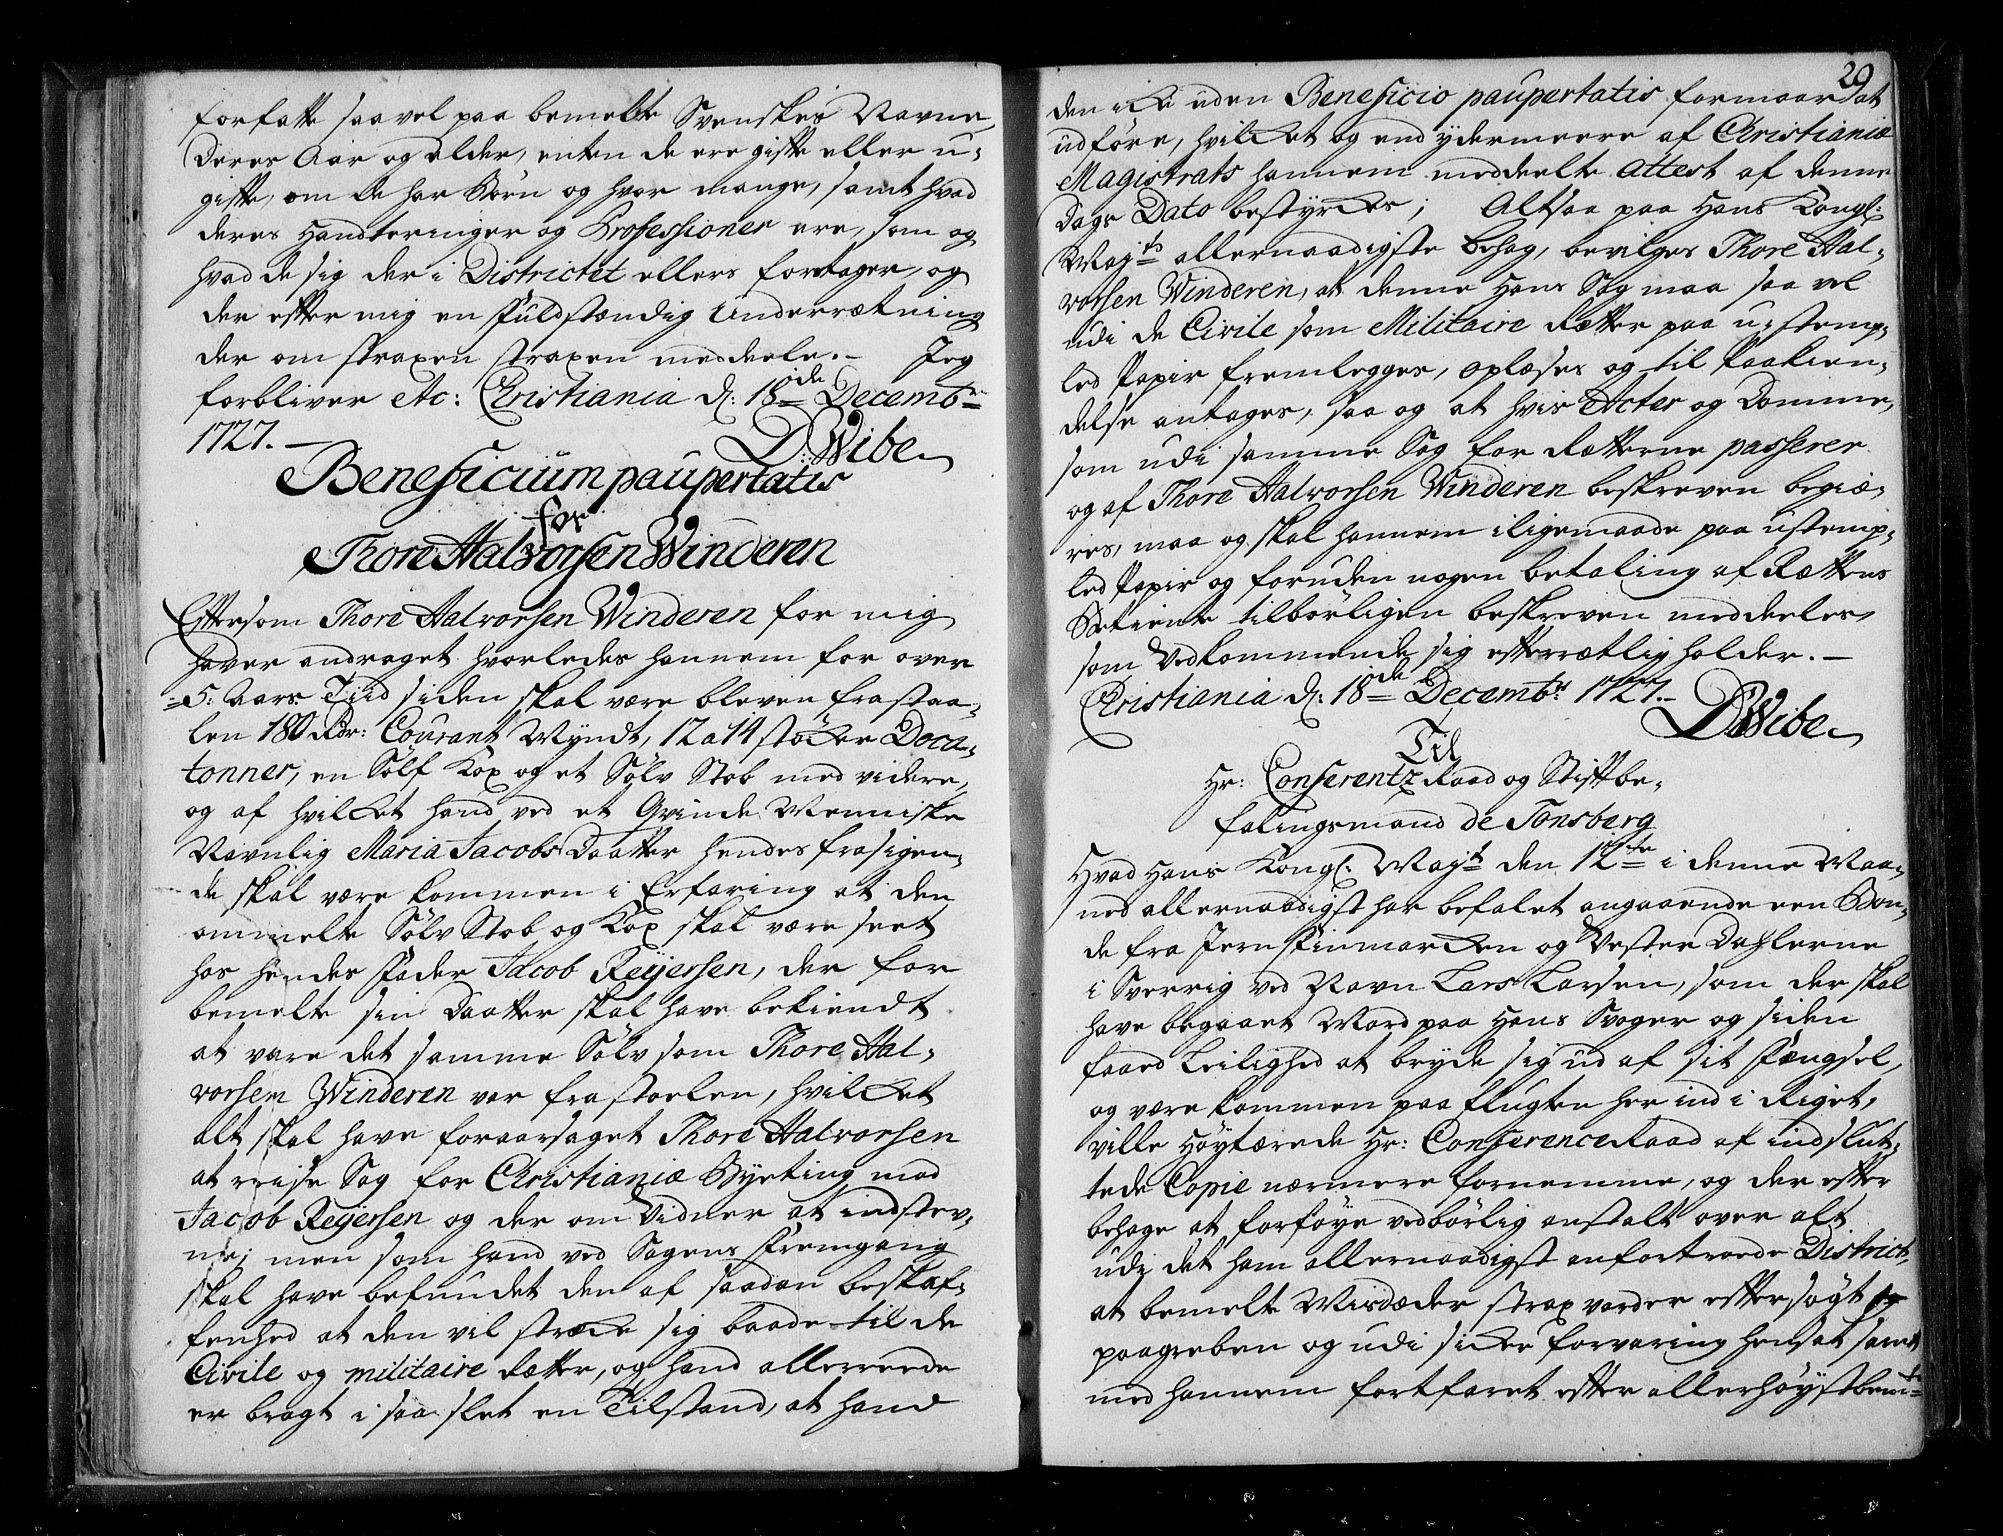 forfatte saavel paa bemelte Svenskes Navne,
deres Aar og alder, enten de ere gifte eller u-
gifte, om de har Børn og hvor mange, samt hvad
deres Handteringer og Professioner ere, som og
hvad de sig der i Districtet ellers foretager, og
der effter mig en Fuldstændig Underrætning
der om straxen straxen meddeele.- Jeg
forbliver etc: Christiania d: 18de Decembr
1727.-
D:Wibe
Beneficium paupertatis
for
Thore Halvorsen Winderen
Efftersom Thore Halvorsen Winderen for mig
haver andraget hvorledes hannem for over
5: Aars Tiid siden skal være bleven frastaa-
len 180 Rdr: Courant Myndt, 12 a 14 støcker Duca-
tonner, en Sølf Kop og et Sølv Stob med videre,
og af hvilcket hand ved et Qvinde Menniske
Navnlig Maria Jacobs Daatter hendes frasigen-
de skal være kommen i Erfaring at den
ommelte Sølv Stob og Kop skal være seet
hos hendes Fader Jacob Reyersen, der for
bemelte sin Daatter skal have bekiendt
at være det samme Sølv som Thore Hal-
vorsen Winderen var frastoelen, hvilcket
alt skal have foraarsaget Thore Halvorsen
at reise Sag for Christianiæ Byeting mod
Jacob Reyersen og der om Vidner at indstev-
ne; men som hand ved Sagens Fremgang
skal have befundet den af saadan beskaf-
fenhed at den vil strecke sig baade til de
Civile og militaire Rætter, og hand allerreede
er bragt i saa slet en Tilstand, at hand
20
den icke uden Beneficio paupertatis formaar at
udføre, hvilcket og end ydermeere af Christianiæ
Magistrats hannem meddeelte Attest af denne
Dags Dato bestyrckes; Altsaa paa Hans Kongl:
Majts allernaadigste behag, bevilges Thore Hal-
vorsen Winderen, at denne Hans Sag maa saa vel
udi de Civile som Militaire Rætter paa u-stemp-
led Papir fremlegges, oplæses og til Paakien-
delse antages, saa og at hvis Acter og Domme,
som udi samme Sag for Rætterne passerer
og af Thore Halvorsen Winderen beskreven begiæ-
res, maa og skal hannem iligemaade paa ustemp-
led Papir og foruden nogen betaling af Rættens
Betiente tilbørligen beskreven meddeeles,
som Vedkommende sig effterrætlig holder.-
Christiania d: 18de Decembr: 1727.-
DWibe
Til
Hr: Conferentz Raad og Stifftbe-
falingsmand de Tonsberg
Hvad Hans Kongl: Majt den 12te i denne Maa-
ned allernaadigst har befalet angaaende een Bon-
de fra Jern Finmarcken og Vester Dahlerne
i Sverrig ved Navn Lars Larsen, som der skal
have begaaet Mord paa Hans Svoger og siden
faaed Leilighed at bryde sig ud af sit Fængsel,
og være kommen paa flugten her ind i Riget,
ville Høytærede Hr: Conference Raad af indslut-
tede Copie nærmere fornemme, og der effter
behage at forføye vedbørlig anstalt over alt
udi det ham allernaadigst anfortroede District,
at bemelte Misdæder strax vorder efftersøgt
paagreben og udi sicker forvaring hensat samt
med hannem fortfaret effter allerhøystbemte